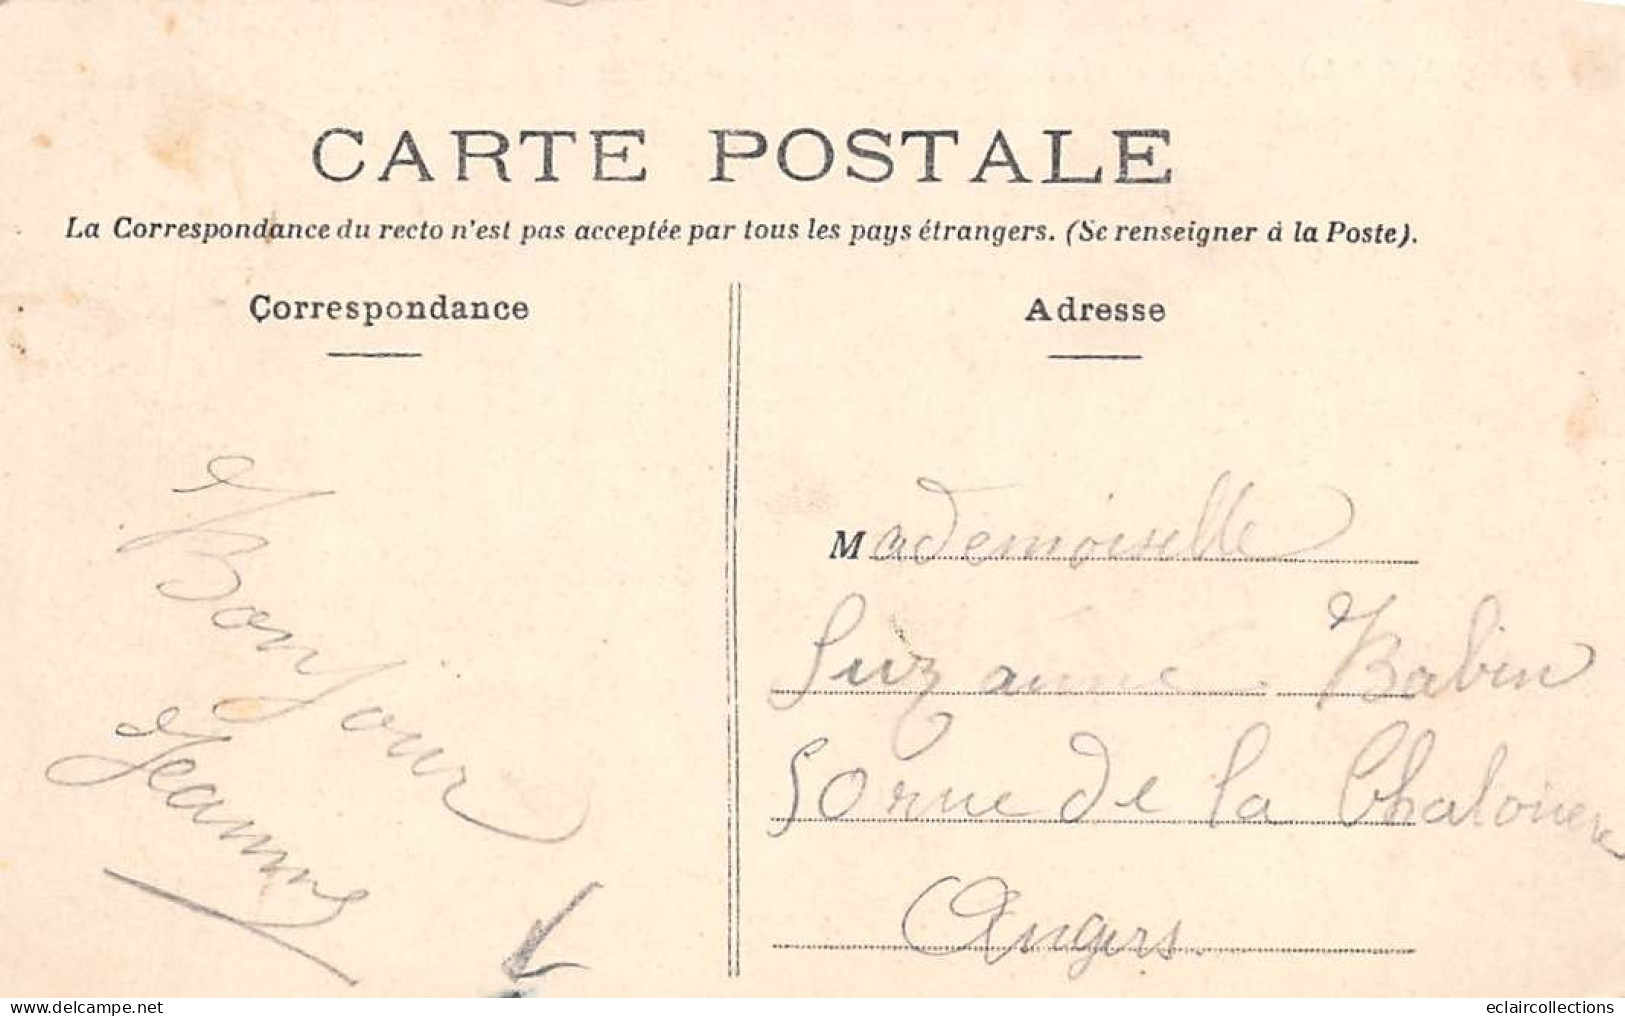 CARTE POSTALE
La Correspondance du recto n'est pas acceptée par tous les pays étrangers. (Se renseigner à la Poste).
Correspondance
Bonjour
Jeanne
Adresse
Mademoiselle
Suzanne Babin
50 rue de la Chalouere
Angers.
eclaircollections